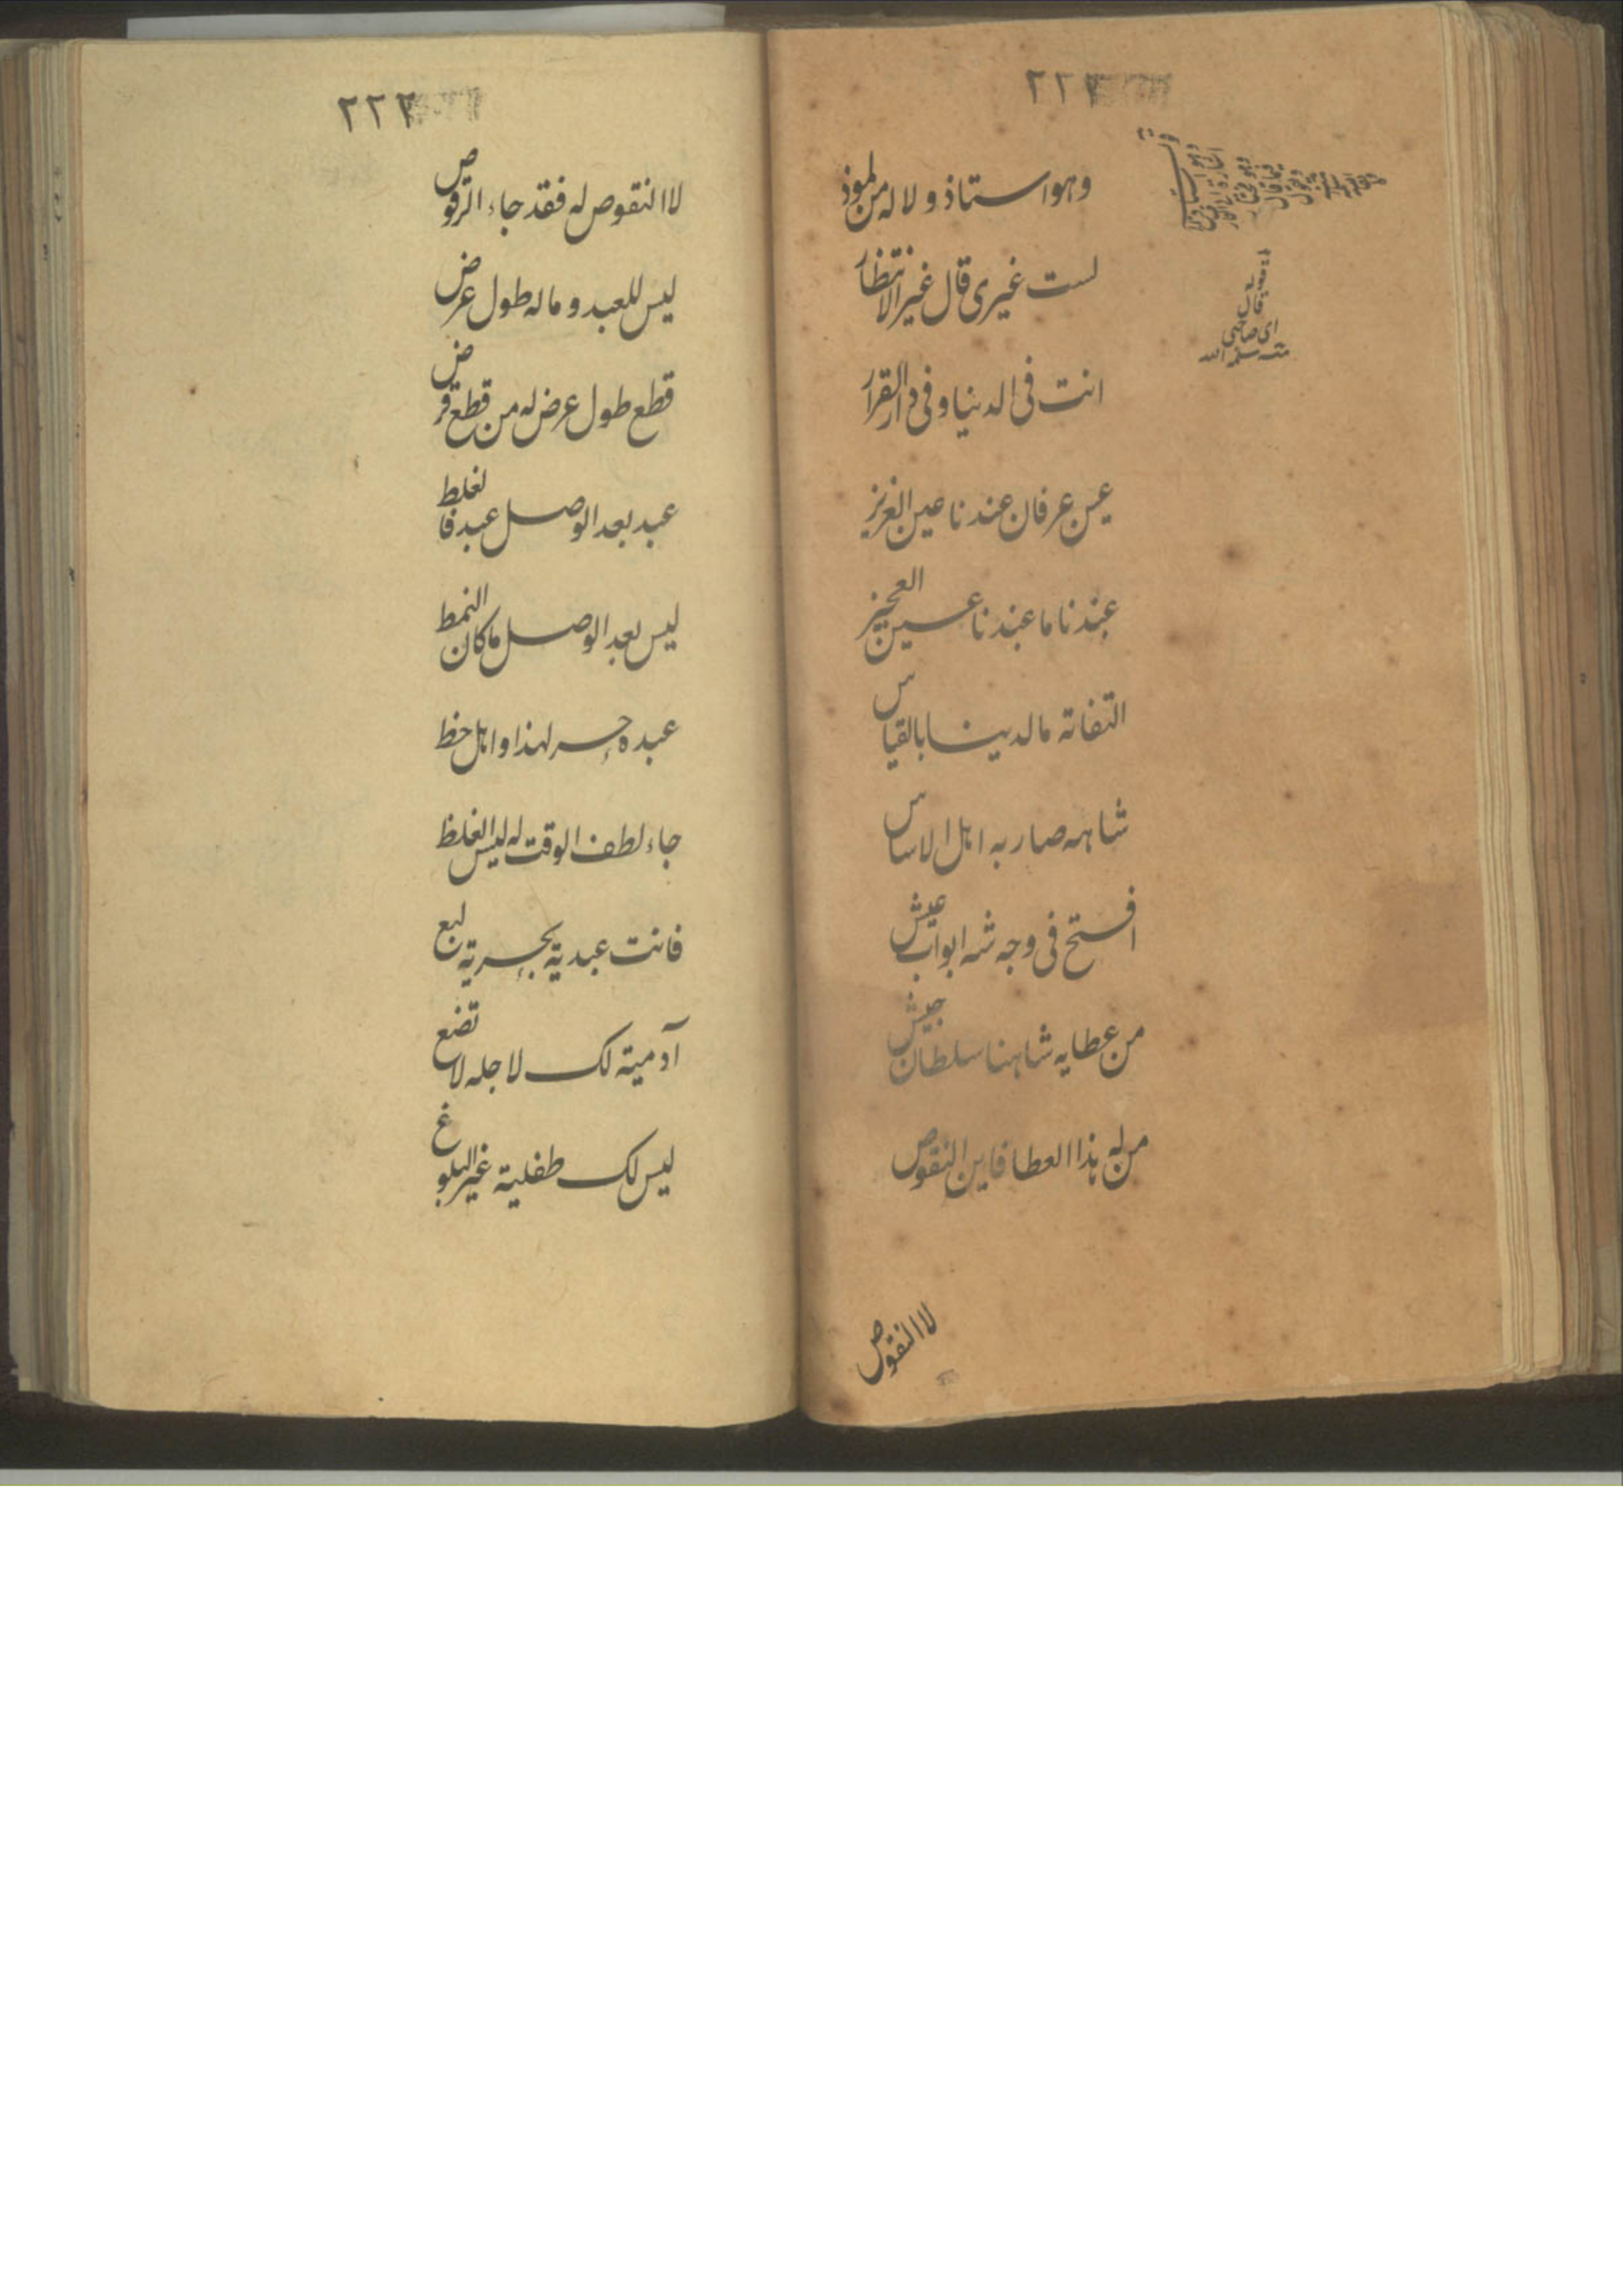 ٢٢٢
وهو استاذ و لا له من لموذ
لست غیری قال غیر الانتظار
انت فی الدنیا و فی دار القرار
عین عرفان عندنا عین العزیز
عندنا ما عندنا عین العجیز
التفاته ما لدینا بالقیاس
شاهه صار به اهل الاساس
افتح فی وجه شه ابواب عیش
من عطایه شاهنا سلطان جیش
من له هذا العطا فاین النقوص
لا النقوص
قوله قال
ای صاحبی
سلمه الله
٢٢٣
لا النقوص له فقد جاء الرقوص
لیس للعبد و ماله طول عرض
قطع طول عرض له من قطع قرض
عبد بعد الوصل عبد فا لغلط
لیس بعد الوصل ما کان النمط
عبده حر لهذا و اهل حظ
جاء لطف الوقت له لیس الغلظ
فانت عبدیة بحریة لبع
آدمیة لک لاجله لا تضع
لیس لک طفلیة غیر البلوغ